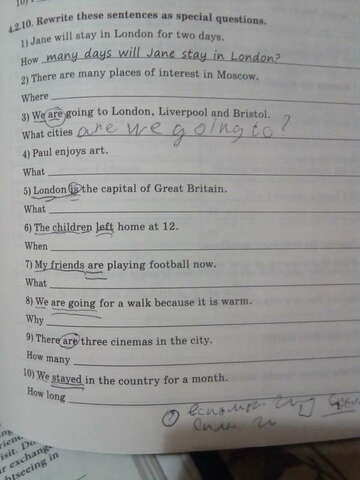 4.2.10. Rewrite these sentences as special questions.
1) Jane will stay in London for two days.
How many days will Jane stay in London?
2) There are many places of interest in Moscow.
Where
3) We are going to London, Liverpool and Bristol.
What cities are we going to?
4) Paul enjoys art.
What
5) London is the capital of Great Britain.
What
6) The children left home at 12.
When
7) My friends are playing football now.
What
8) We are going for a walk because it is warm.
Why
9) There are three cinemas in the city.
How many
10) We stayed in the country for a month.
How long
exchang
htseeing in